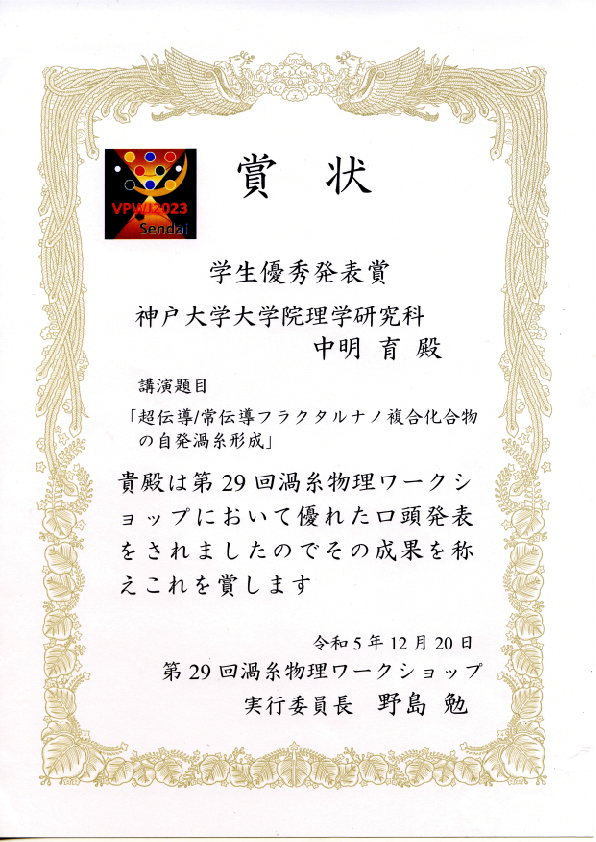 賞 状
VPWJ2023
Sendai
学生優秀発表賞
神戸大学大学院理学研究科
中明 育 殿
講演題目
「超伝導/常伝導フラクタルナノ複合化合物
の自発渦糸形成」
貴殿は第29回渦糸物理ワークシ
ョップにおいて優れた口頭発表
をされましたのでその成果を称
えこれを賞します
令和5年12月20日
第29回渦糸物理ワークショップ
実行委員長 野島 勉